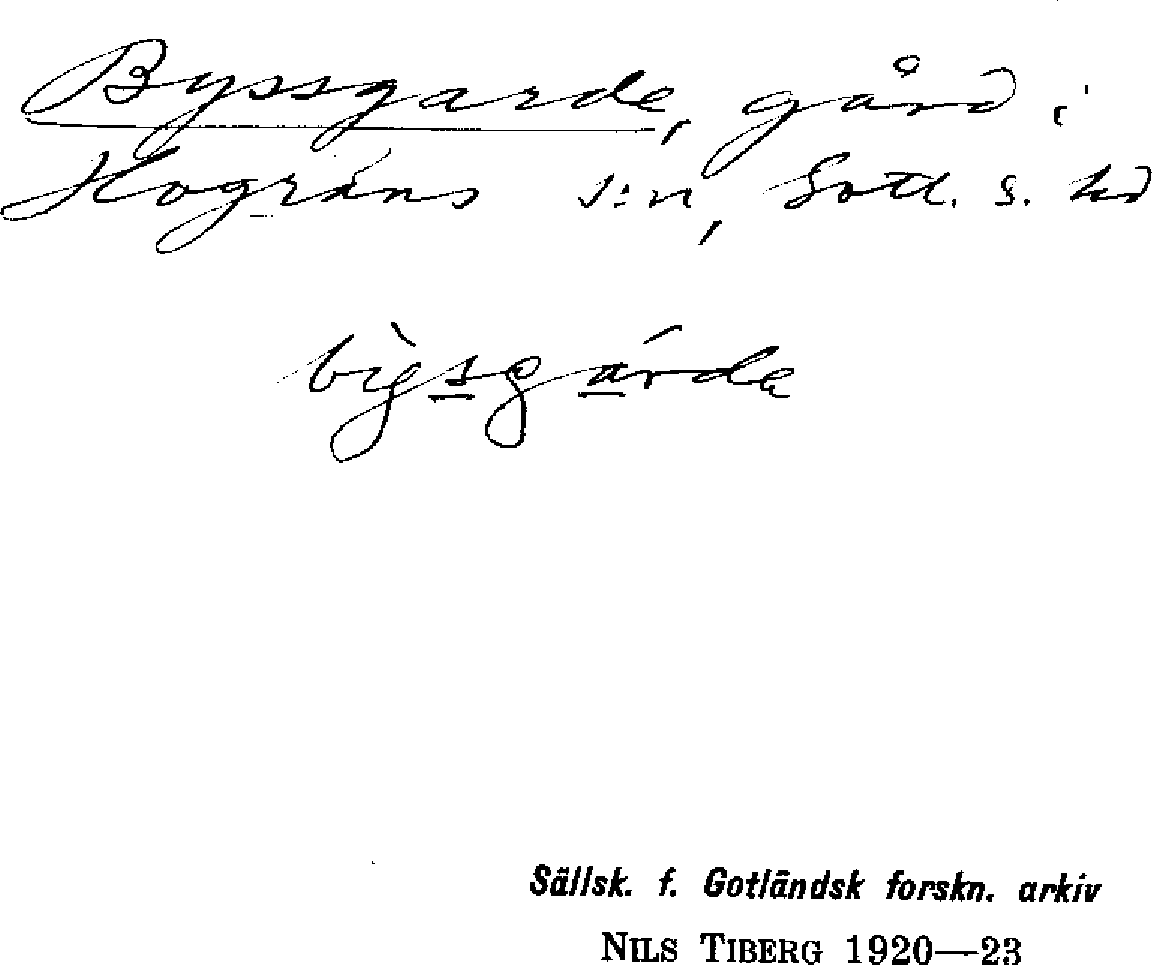 Byssgarde, gård i
Hogräns s:n, Gotl. s. hd
bỳsgárda
Sällsk. f. Gotländsk forskn. arkiv
NILS TIBERG 1920—23